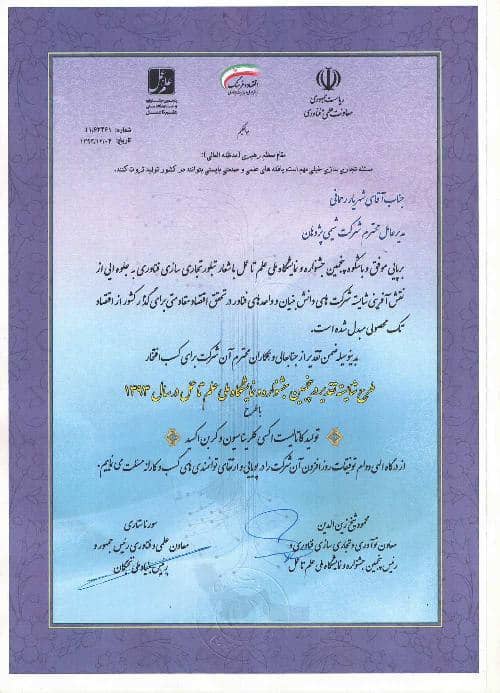 علم تا عمل
اقتصاد و فرهنگ
ریاست جمهوری
معاونت علمی و فناوری
شماره: ۱۱/۶۲۴۶۱
تاریخ: ۱۳۹۳/۱۲/۰۴
مقام معظم رهبری (مدظله العالی):
مسئله تجاری سازی خیلی مهم است، یافته های علمی و صنعتی بایستی بتوانند در کشور تولید ثروت کنند.
جناب آقای شهریار رحمانی
مدیرعامل محترم شرکت شیمی پژوهان
برپایی موفق و باشکوه پنجمین جشنواره و نمایشگاه ملی علم تا عمل با شعار تبلور تجاری سازی فناوری به جلوه ایی از
نقش آفرینی شایسته شرکت های دانش بنیان و واحدهای فناور در تحقق اقتصاد مقاومتی برای گذار کشور از اقتصاد
تک محصولی مبدل شده است.
بدینوسیله ضمن تقدیر از جنابعالی و همکاران محترم آن شرکت برای کسب افتخار
طرح شایسته تقدیر در پنجمین جشنواره و نمایشگاه ملی علم تا عمل در سال ۱۳۹۳
با طرح
تولید کاتالیست اکسی کلریناسیون و کربن اکسید
از درگاه الهی دوام توفیقات روز افزون آن شرکت را در پویایی و ارتقای توانمندی های کسب و کارانه مسئلت می نمایم.
محمود شیخ زین الدین
معاون نوآوری و تجاری سازی فناوری و
رئیس پنجمین جشنواره و نمایشگاه ملی علم تا عمل
سورنا ستاری
معاون علمی و فناوری رئیس جمهور و
رئیس بنیاد ملی نخبگان